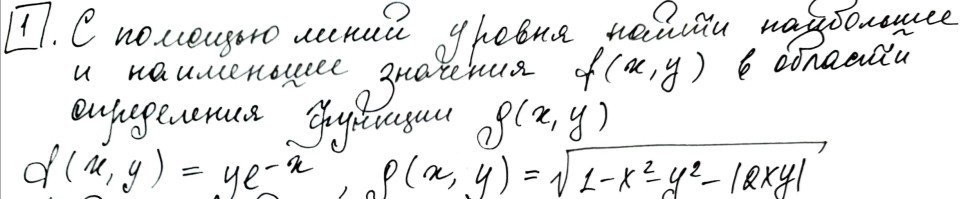 1. С помощью линий уровня найти наибольшее
и наименьшее значения f(x,y) в области
определения функции g(x,y)
f(x,y) = ye^{-x}, g(x,y) = √(1-x²-y²-|2xy|)